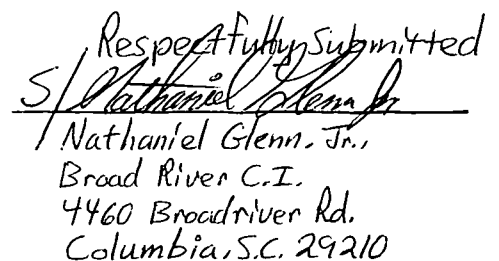 Respectfully Submitted
S/ Nathaniel Glenn Jr
Nathaniel Glenn. Jr.,
Broad River C.I.
4460 Broadriver Rd.
Columbia, S.C. 29210